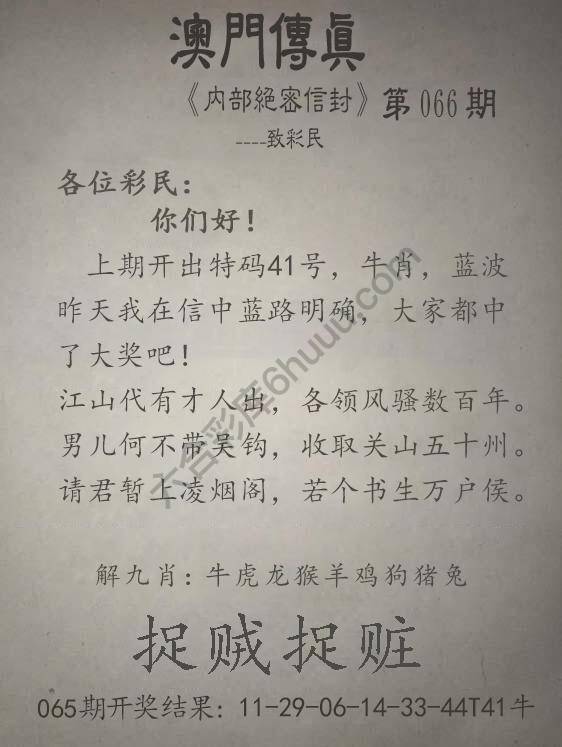 澳門傳眞
《内部絕密信封》第066期
----致彩民
各位彩民：
你们好！
上期开出特码41号，牛肖，蓝波
昨天我在信中蓝路明确，大家都中
了大奖吧！
江山代有才人出，各领风骚数百年。
男儿何不带吴钩，收取关山五十州。
请君暂上凌烟阁，若个书生万户侯。
解九肖：牛虎龙猴羊鸡狗猪兔
捉贼捉赃
065期开奖结果：11-29-06-14-33-44T41牛
六合彩库6huuu.com